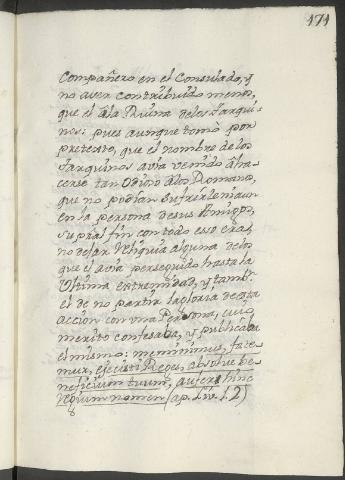 171
Compañero en el Consulado, y
no aver contribuido menos,
que el â la Ruina delos Tarqui-
nos: pues aunque tomò por
pretexto, que el nombre de los
Tarquinos avia venido â ha-
cerse tan Odioso alos Romanos,
que no podian sufrirle ni aun
en la persona de sus Amigos,
su al fin con todo eso era,
no dejar Reliquia alguna delos
que el avia perseguido hasta la
Ultima extremidad, y tambn.
el de no partir la gloria de esta
accion con una Persona, cuio
merito confesaba, y publicaba
el mismo: meminimus, fate-
mur, ejecisti Reges, absolve be-
neficium tuum, aufer hinc
regium nomen (ap. Liv. l. 2)